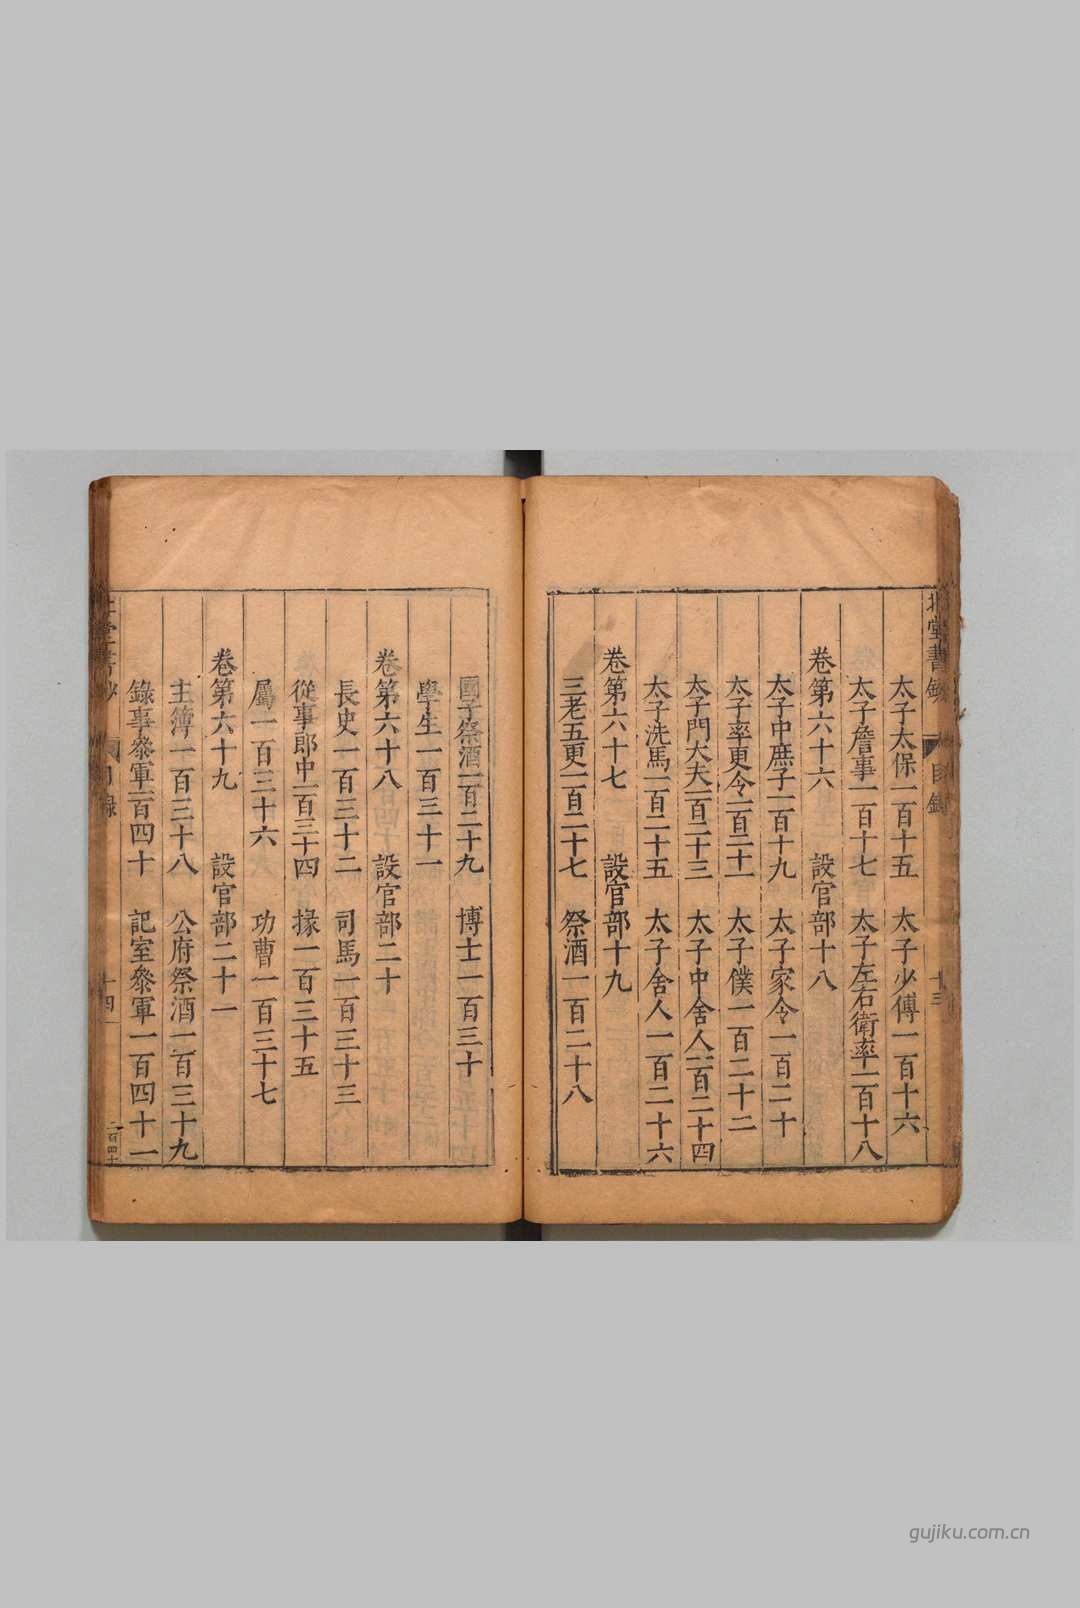 北堂書鈔 目錄 十三
太子太保一百十五 太子少傅一百十六
太子詹事一百十七 太子左右衛率一百十八
卷第六十六 設官部十八
太子中庶子一百十九 太子家令一百二十
太子率更令一百二十一 太子僕一百二十二
太子門大夫一百二十三 太子中舍人一百二十四
太子洗馬一百二十五 太子舍人一百二十六
卷第六十七 設官部十九
三老五更一百二十七 祭酒一百二十八
國子祭酒一百二十九 博士一百三十
學生一百三十一
卷第六十八 設官部二十
長史一百三十二 司馬一百三十三
從事郎中一百三十四 掾一百三十五
屬一百三十六 功曹一百三十七
卷第六十九 設官部二十一
主簿一百三十八 公府祭酒一百三十九
錄事叅軍一百四十 記室叅軍一百四十一
北堂書鈔 目錄 十四 二百四十
gujiku.com.cn